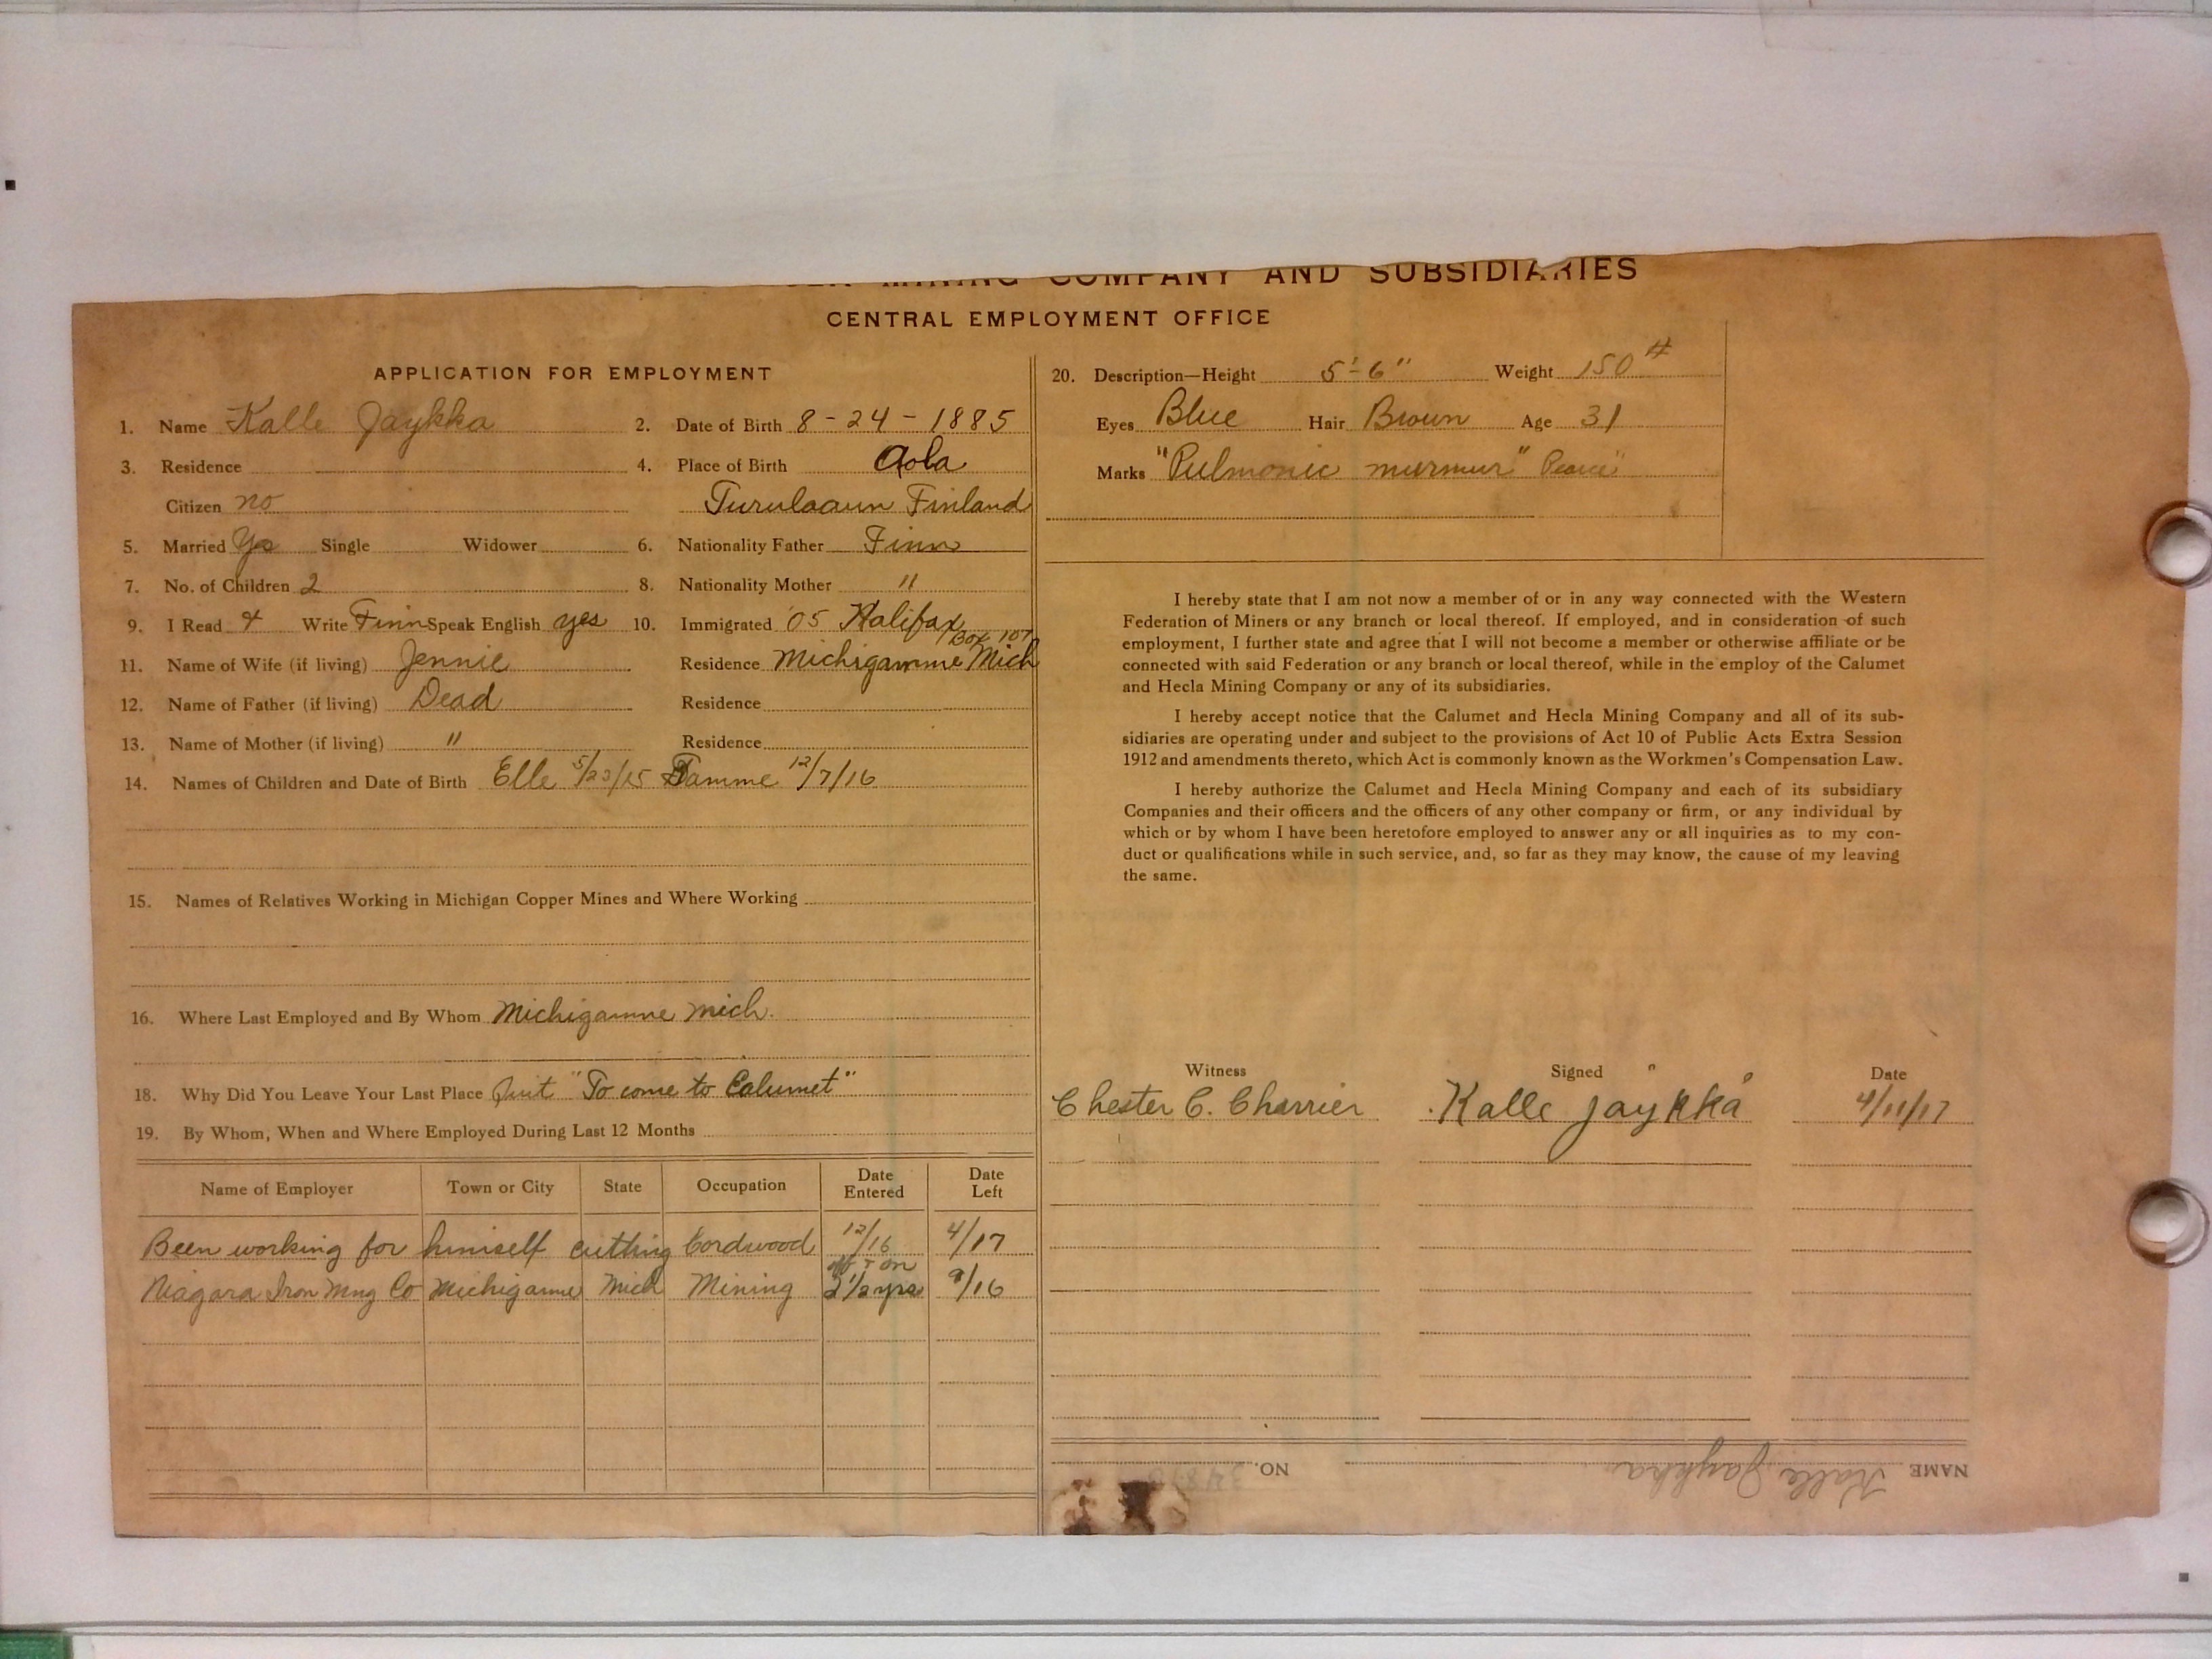 MINING COMPANY AND SUBSIDIARIES
CENTRAL EMPLOYMENT OFFICE
APPLICATION FOR EMPLOYMENT
1. Name Kalle Jaykka 2. Date of Birth 8-24-1885
3. Residence 4. Place of Birth
Citizen no Finland
5. Married Yes Single Widower 6. Nationality Father Finn
7. No. of Children 2 8. Nationality Mother "
9. I Read & Write Finn Speak English yes 10. Immigrated '05 Halifax
Box 107
11. Name of Wife (if living) Jennie Residence Michigamme Mich
12. Name of Father (if living) Dead Residence
13. Name of Mother (if living) " Residence
14. Names of Children and Date of Birth Elle 5/23/15 12/7/16
15. Names of Relatives Working in Michigan Copper Mines and Where Working
16. Where Last Employed and By Whom Michigamme Mich.
18. Why Did You Leave Your Last Place Quit "To come to Calumet"
19. By Whom, When and Where Employed During Last 12 Months
Name of Employer Town or City State Occupation Date Entered Date Left
Been working for himself cutting Cordwood 12/16 4/17
off & on
Niagara Iron Mng Co Michigamme Mich Mining 2 1/2 yrs 9/16
20. Description—Height 5'-6" Weight 150#
Eyes Blue Hair Brown Age 31
Marks "Pulmonic murmur"
I hereby state that I am not now a member of or in any way connected with the Western
Federation of Miners or any branch or local thereof. If employed, and in consideration of such
employment, I further state and agree that I will not become a member or otherwise affiliate or be
connected with said Federation or any branch or local thereof, while in the employ of the Calumet
and Hecla Mining Company or any of its subsidiaries.
I hereby accept notice that the Calumet and Hecla Mining Company and all of its sub-
sidiaries are operating under and subject to the provisions of Act 10 of Public Acts Extra Session
1912 and amendments thereto, which Act is commonly known as the Workmen's Compensation Law.
I hereby authorize the Calumet and Hecla Mining Company and each of its subsidiary
Companies and their officers and the officers of any other company or firm, or any individual by
which or by whom I have been heretofore employed to answer any or all inquiries as to my con-
duct or qualifications while in such service, and, so far as they may know, the cause of my leaving
the same.
Witness Signed Date
Chester C. Charrier Kalle Jaykka 4/11/17
NAME Kalle Jaykka NO.